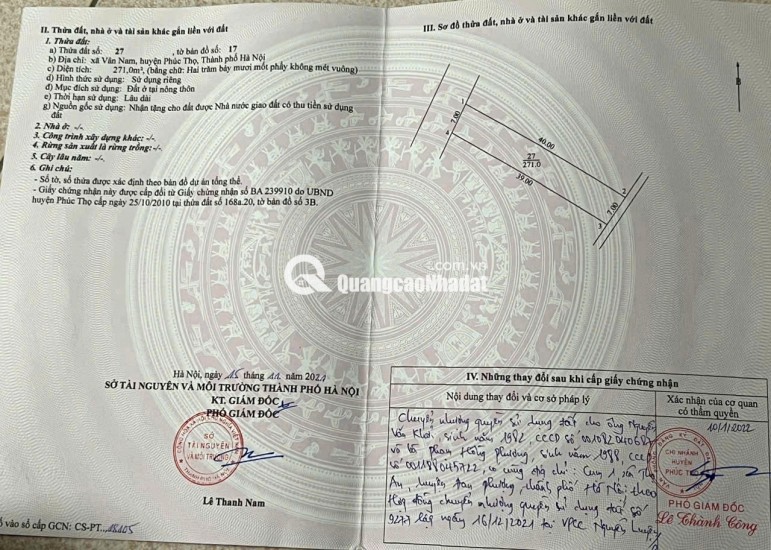 II. Thửa đất, nhà ở và tài sản khác gắn liền với đất
1. Thửa đất:
a) Thửa đất số: 27 , tờ bản đồ số: 17
b) Địa chỉ: xã Vân Nam, huyện Phúc Thọ, Thành phố Hà Nội
c) Diện tích: 271,0m², (bằng chữ: Hai trăm bảy mươi mốt phẩy không mét vuông)
d) Hình thức sử dụng: Sử dụng riêng
đ) Mục đích sử dụng: Đất ở tại nông thôn
e) Thời hạn sử dụng: Lâu dài
g) Nguồn gốc sử dụng: Nhận tặng cho đất được Nhà nước giao đất có thu tiền sử dụng
đất
2. Nhà ở: -/-
3. Công trình xây dựng khác: -/-
4. Rừng sản xuất là rừng trồng: -/-
5. Cây lâu năm: -/-
6. Ghi chú:
- Số tờ, số thửa được xác định theo bản đồ dự án tổng thể.
- Giấy chứng nhận này được cấp đổi từ Giấy chứng nhận số BA 239910 do UBND
huyện Phúc Thọ cấp ngày 25/10/2010 tại thửa đất số 168a.20, tờ bản đồ số 3B.
Hà Nội, ngày 15 tháng 11 năm 2021
SỞ TÀI NGUYÊN VÀ MÔI TRƯỜNG THÀNH PHỐ HÀ NỘI
KT. GIÁM ĐỐC
PHÓ GIÁM ĐỐC
SỞ
TÀI NGUYÊN
VÀ MÔI TRƯỜNG
Lê Thanh Nam
số vào sổ cấp GCN: CS-PT
III. Sơ đồ thửa đất, nhà ở và tài sản khác gắn liền với đất
B
1
7.00
4
40.00
27
271.0
39.00
2
7.00
3
.com.vn
QuangcaoNhadat
IV. Những thay đổi sau khi cấp giấy chứng nhận
Nội dung thay đổi và cơ sở pháp lý
Xác nhận của cơ quan
có thẩm quyền
Chuyển nhượng quyền sử dụng đất cho ông Nguyễn
Văn Khơi, sinh năm 1982, CCCD số
và bà Phan Hồng Phương, sinh năm 1988, CCCD
số 001188045722, có cùng địa chỉ: Cụm 1, xã Thọ
An, huyện Đan Phượng, thành phố Hà Nội theo
Hợp đồng chuyển nhượng quyền sử dụng đất số
lập ngày 16/12/2021 tại VPCC Nguyễn
10/1/2022
CHI NHÁNH
HUYỆN
PHÚC THỌ
PHÓ GIÁM ĐỐC
Lê Thành Công